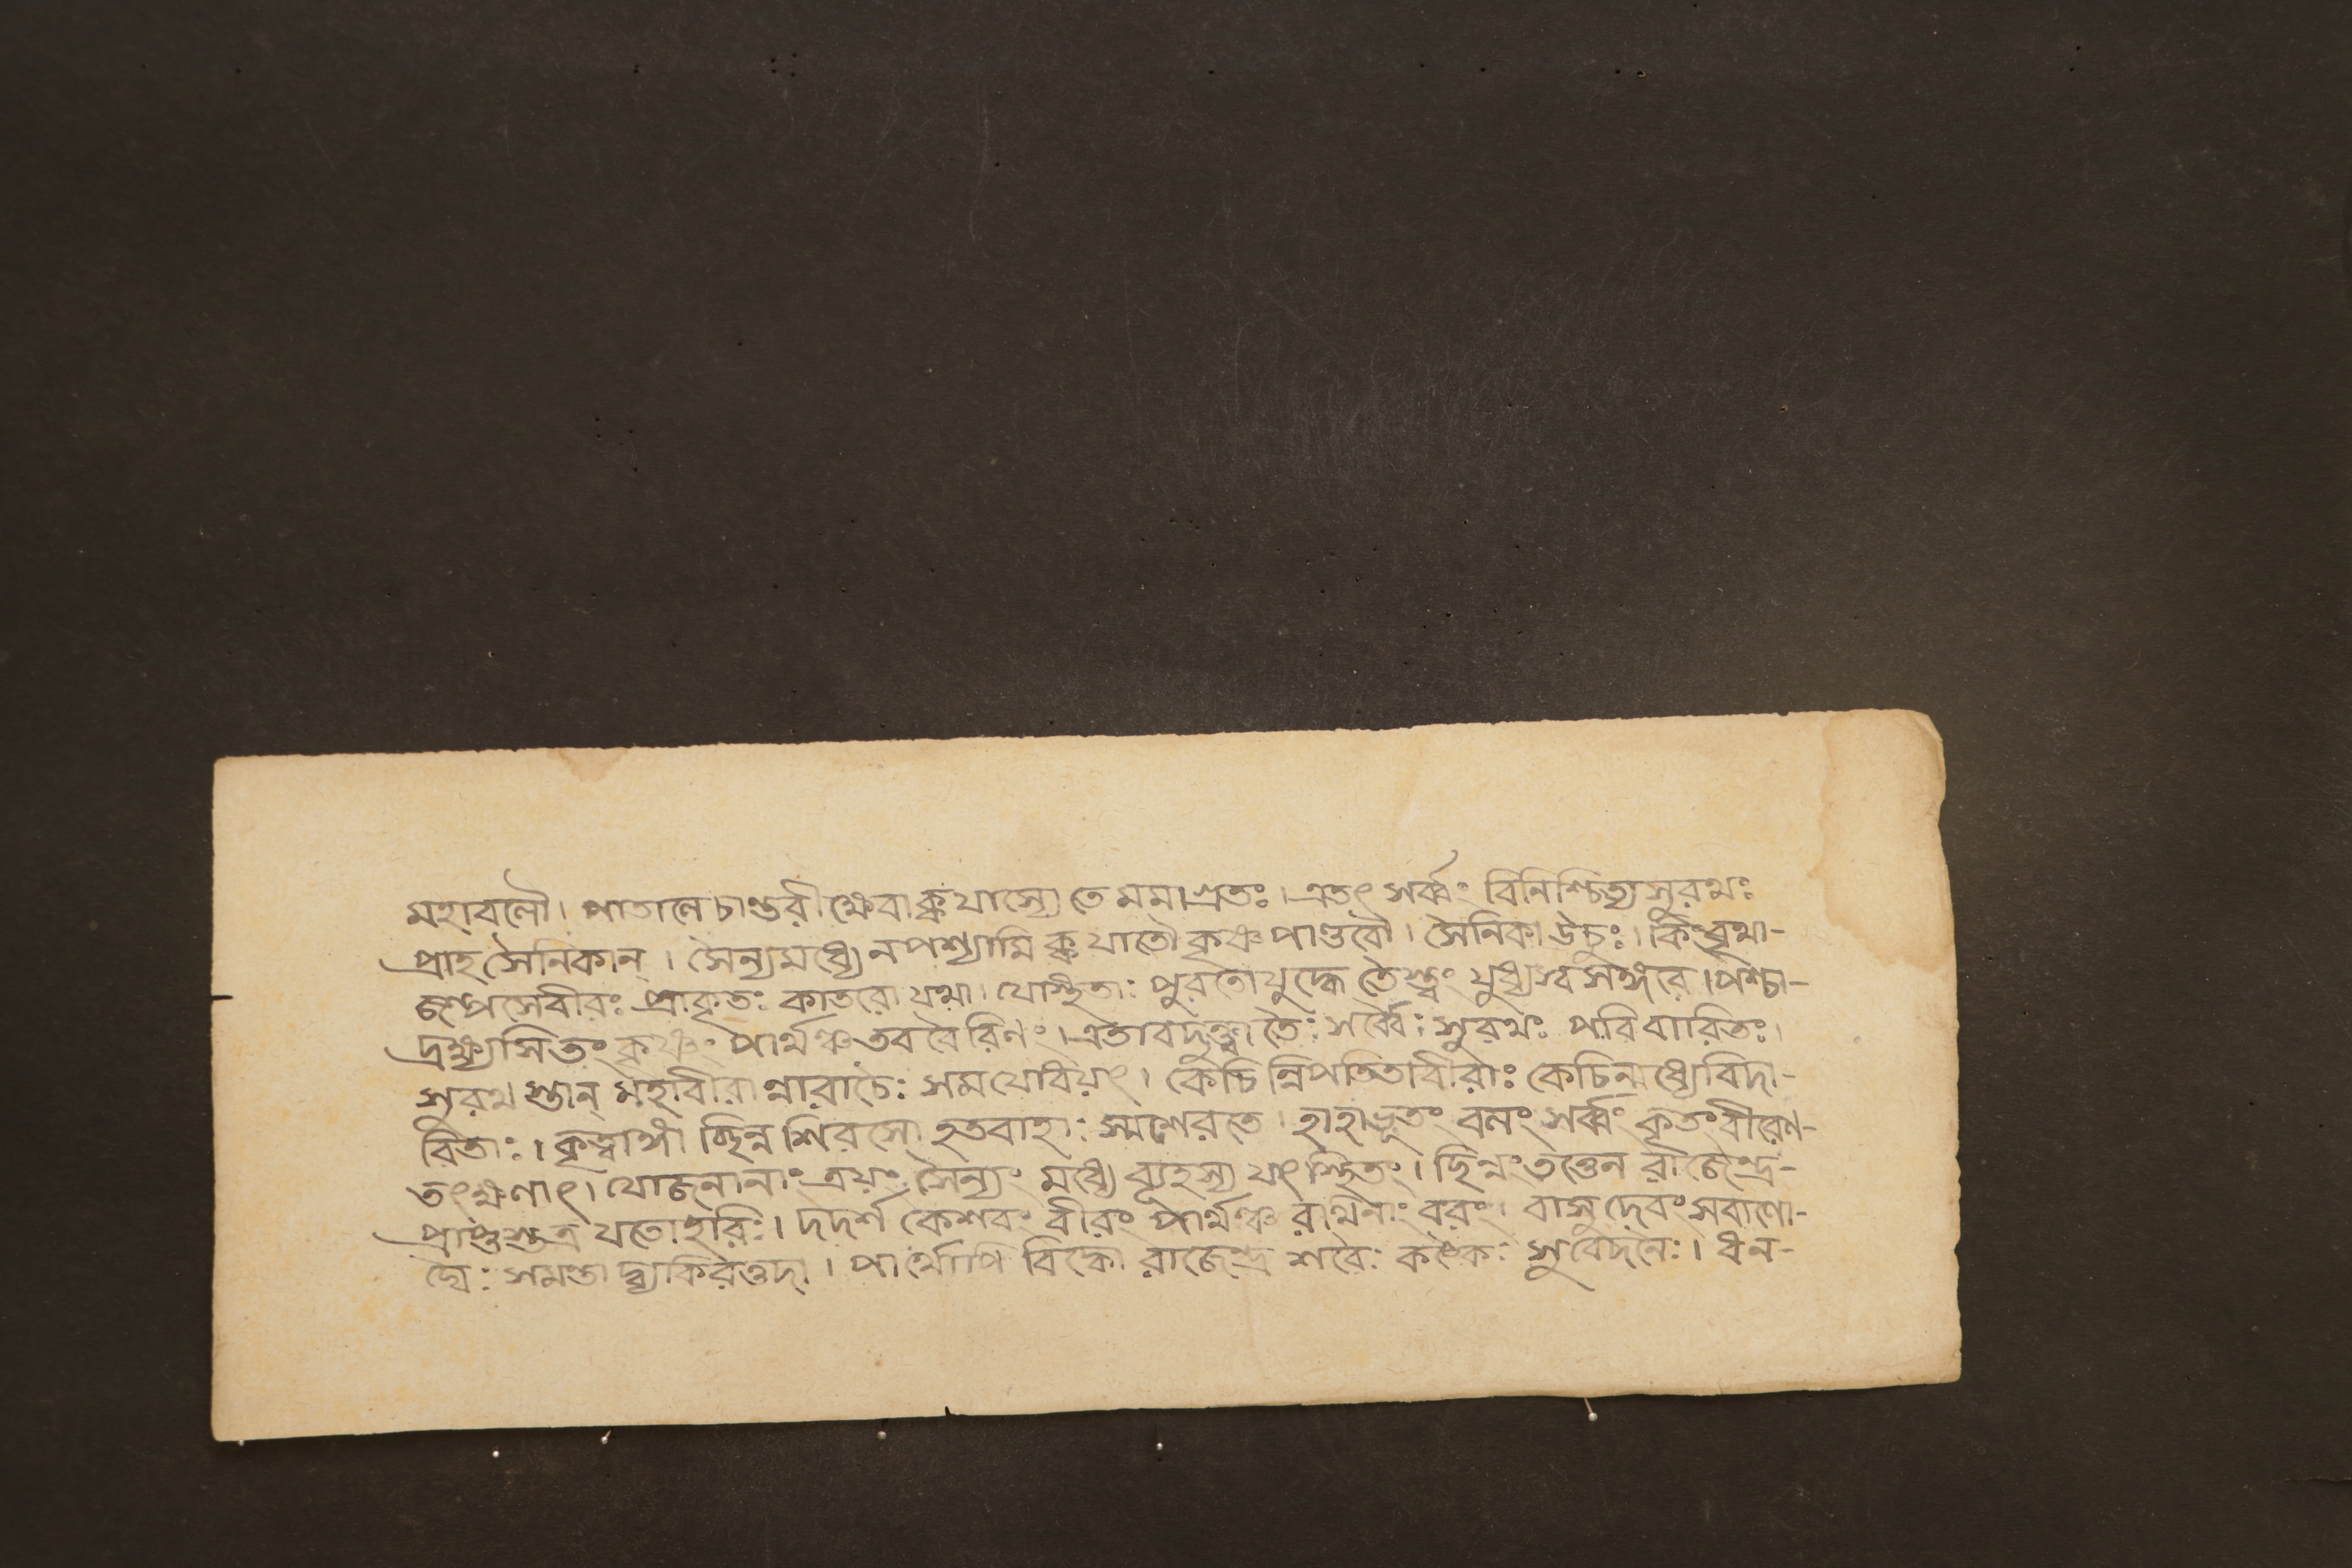 মহাবলৌ। পাতালে চান্তরীক্ষে বা ক্ব যাস্যেতে মমাগ্রতঃ। এতৎ সর্ব্বং বিনিশ্চিত্য সুরথঃ
প্রাহ সৈনিকান্। সৈন্যমধ্যে ন পশ্যামি ক্ব যাতৌ কৃষ্ণপাণ্ডবৌ। সৈনিকা ঊচুঃ। কিং বৃথা-
জল্পসে বীরঃ প্রাকৃতঃ কাতরো যথা। যে স্থিতাঃ পুরতো যুদ্ধে তৈস্ত্বং যুধ্যস্ব সঙ্গরে। পশ্চা-
দ্রক্ষ্যসি তং কৃষ্ণং পার্থঞ্চ তব বৈরিণং। এতাবদুক্ত্বা তৈঃ সর্ব্বৈঃ সুরথঃ পরিবারিতঃ।
সুরথ স্তান্ মহাবীরা ন্নারাচৈঃ সমযোধয়ৎ। কেচি ন্নিপতিতা বীরাঃ কেচিন্মধ্যে বিদা-
রিতাঃ। কৃত্তাঙ্গা শ্ছিন্নশিরসো হতবাহাঃ স্মশেরতে। হাহাভূতং বলং সর্ব্বং কৃতং বীরেণ-
তৎক্ষণাৎ। যোজনানাং ত্রয়ং সৈন্যং মধ্যে ব্যূহস্য যৎ স্থিতং। ছিন্নং তত্তেন রাজেন্দ্র-
প্রাপ্তস্তত্র যতো হরিঃ। দদর্শ কেশবং বীরং পার্থঞ্চ রথিনাং বরং। বাসুদেবং স বাণৌ-
ঘৈঃ সমন্তা দ্ব্যকিরত্তদা। পার্থোপি বিদ্ধো রাজেন্দ্র শরৈঃ কঙ্কৈঃ সুবেদনৈঃ। ধন-